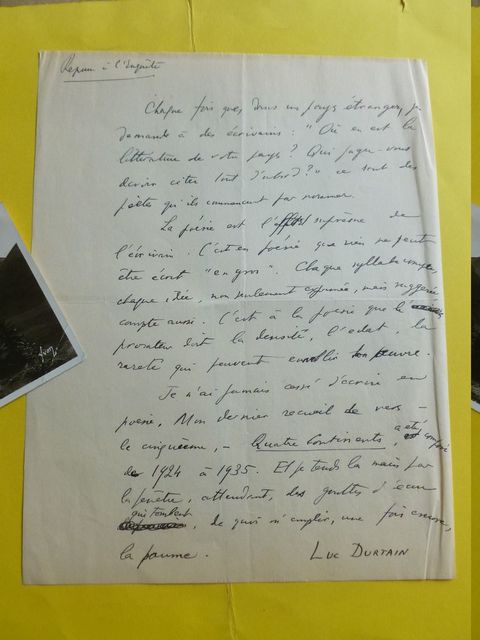 Réponse à l'Enquête
Chaque fois que, dans un pays étranger, je
demande à des écrivains : "Où en est la
littérature de votre pays ? Qui jugez-vous
devoir citer tout d'abord ?" ce sont des
poètes qu'ils commencent par nommer.
La poésie est l'effort suprême de
l'écrivain. C'est en poésie que rien ne peut
être écrit "en gros". Chaque syllabe compte,
chaque idée, non seulement exprimée, mais suggérée
compte aussi. C'est à la poésie que le
prosateur doit la densité, l'éclat, la
rareté qui peuvent ennoblir son œuvre.
Je n'ai jamais cessé d'écrire en
poésie. Mon dernier recueil de vers -
le cinquième, - Quatre Continents, a été composé
de 1924 à 1935. Et je tends la main par
la fenêtre, attendant, des gouttes d'eau
qui tombent, de quoi m'emplir, une fois encore,
la paume. LUC DURTAIN